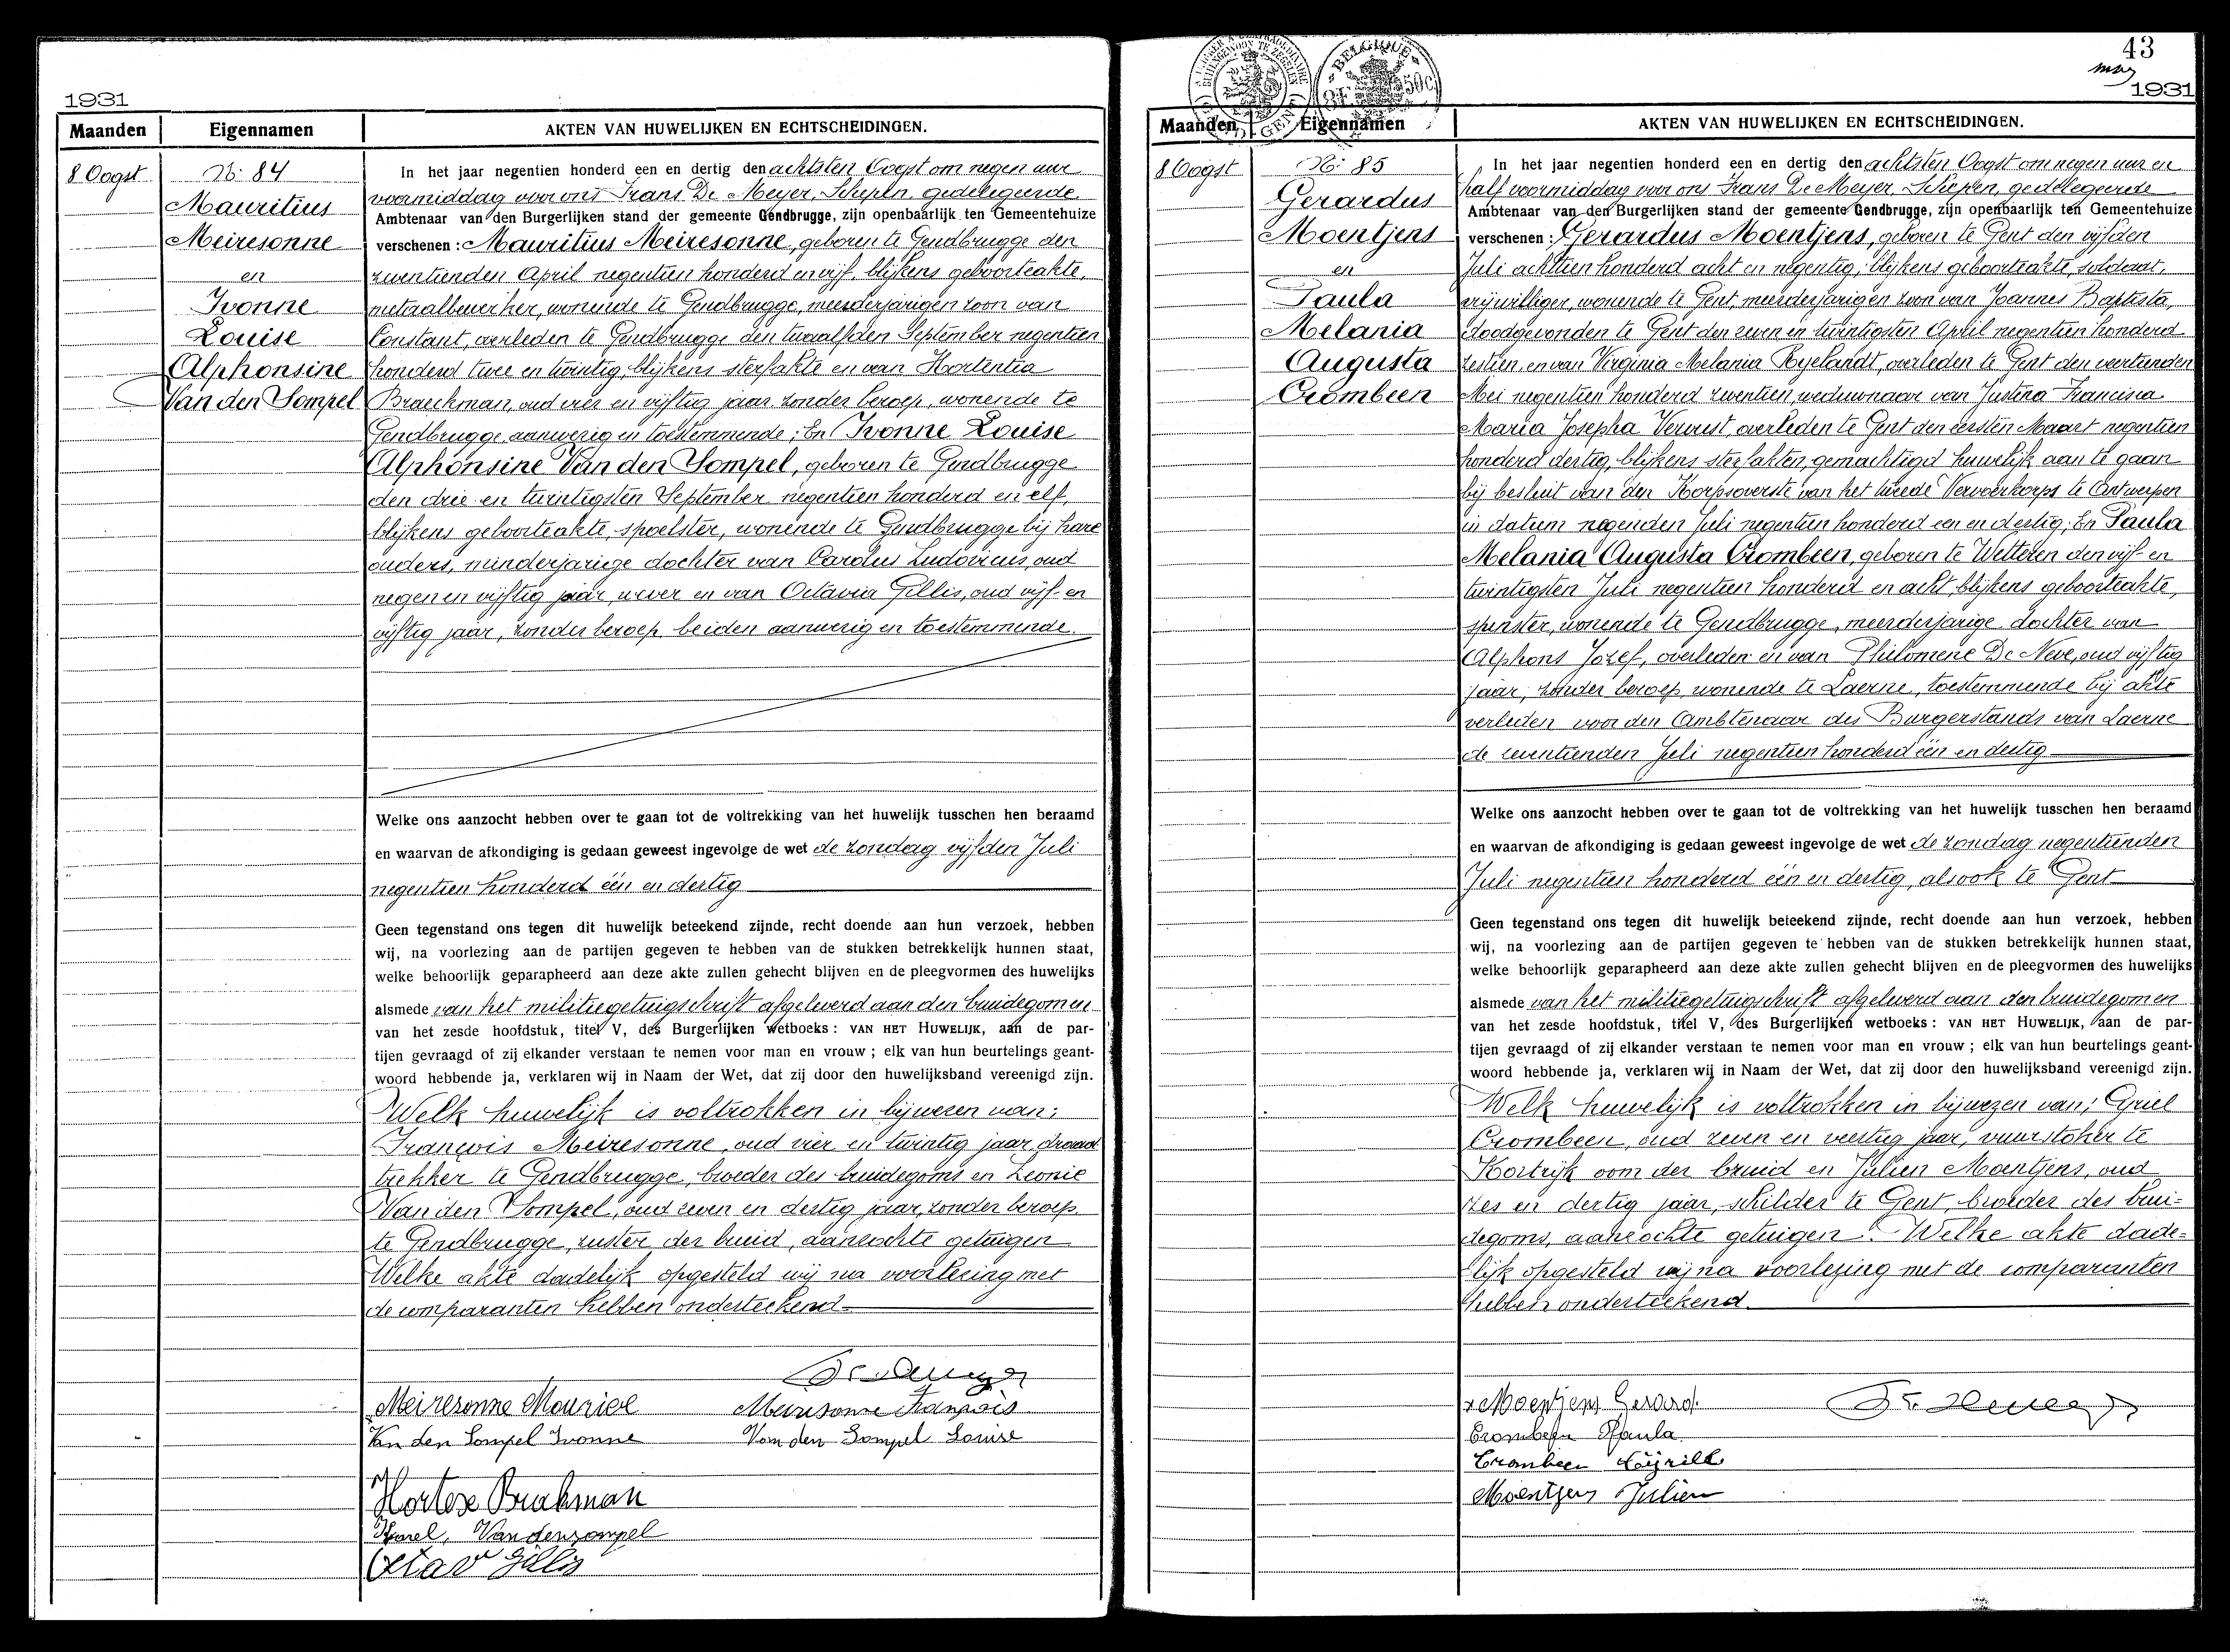 1931
Maanden Eigennamen AKTEN VAN HUWELIJKEN EN ECHTSCHEIDINGEN.
8 Oogst
N: 84
Mauritius
Meiresonne
en
Ivonne
Louise
Alphonsine
Van den Sompel
In het jaar negentien honderd een en dertig den achtsten Oogst om negen uur
voormiddag voor ons Frans De Meyer, Schepen, gedelegeerde
Ambtenaar van den Burgerlijken stand der gemeente Gendbrugge, zijn openbaarlijk ten Gemeentehuize
verschenen : Mauritius Meiresonne, geboren te Gendbrugge den
zeventienden April negentien honderd en vijf, blijkens geboorteakte,
metaalbewerker, wonende te Gendbrugge, meerderjarigen zoon van
Constant, overleden te Gendbrugge den twaalfden September negentien
honderd twee en twintig, blijkens sterfakte en van Hortentia
Braeckman, oud vier en vijftig jaar, zonder beroep, wonende te
Gendbrugge, aanwezig en toestemmende; En Ivonne Louise
Alphonsine Van den Sompel, geboren te Gendbrugge
den drie en twintigsten September negentien honderd en elf,
blijkens geboorteakte, spoelster, wonende te Gendbrugge bij hare
ouders, minderjarige dochter van Carolus Ludovicus, oud
negen en vijftig jaar, wever en van Octavia Gillis, oud vijf en
vijftig jaar, zonder beroep, beiden aanwezig en toestemmende.
Welke ons aanzocht hebben over te gaan tot de voltrekking van het huwelijk tusschen hen beraamd
en waarvan de afkondiging is gedaan geweest ingevolge de wet de zondag vijfden Juli
negentien honderd één en dertig
Geen tegenstand ons tegen dit huwelijk beteekend zijnde, recht doende aan hun verzoek, hebben
wij, na voorlezing aan de partijen gegeven te hebben van de stukken betrekkelijk hunnen staat,
welke behoorlijk geparapheerd aan deze akte zullen gehecht blijven en de pleegvormen des huwelijks
alsmede van het militiegetuigschrift afgeleverd aan den bruidegom en
van het zesde hoofdstuk, titel V, des Burgerlijken wetboeks : VAN HET HUWELIJK, aan de par-
tijen gevraagd of zij elkander verstaan te nemen voor man en vrouw ; elk van hun beurtelings geant-
woord hebbende ja, verklaren wij in Naam der Wet, dat zij door den huwelijksband vereenigd zijn.
Welk huwelijk is voltrokken in bijwezen van:
François Meiresonne, oud vier en twintig jaar, draad
trekker te Gendbrugge, broeder des bruidegoms en Leonie
Van den Sompel, oud zeven en dertig jaar, zonder beroep
te Gendbrugge, zuster der bruid, aanzochte getuigen
Welke akte dadelijk opgesteld wij na voorlezing met
de comparanten hebben onderteekend.
Meiresonne Maurice Meiresonne François
Van den Sompel Ivonne Van den Sompel Louise
Hortese Brakman
Karel. Vandensompel
Octav Gillis
43
1931
BELGIQUE
Maanden Eigennamen AKTEN VAN HUWELIJKEN EN ECHTSCHEIDINGEN.
8 Oogst
N: 85
Gerardus
Moentjens
en
Paula
Melania
Augusta
Crombeen
In het jaar negentien honderd een en dertig den achtsten Oogst om negen uur en
half voormiddag voor ons Frans De Meyer, Schepen, gedelegeerde
Ambtenaar van den Burgerlijken stand der gemeente Gendbrugge, zijn openbaarlijk ten Gemeentehuize
verschenen : Gerardus Moentjens, geboren te Gent den vijfden
Juli achttien honderd acht en negentig, blijkens geboorteakte, soldaat,
vrijwilliger, wonende te Gent, meerderjarigen zoon van Joannes Baptista,
doodgevonden te Gent den zeven en twintigsten April negentien honderd
zestien, en van Virginia Melania Ryelandt, overleden te Gent den veertienden
Mei negentien honderd zeventien, weduwnaar van Justina Francisca
Maria Josepha Vervust, overleden te Gent den eersten Maart negentien
honderd dertig, blijkens sterfakten, gemachtigd huwelijk aan te gaan
bij besluit van den Korpsoverste van het tweede Vervoerkorps te Antwerpen
in datum negenden Juli negentien honderd een en dertig; En Paula
Melania Augusta Crombeen, geboren te Wetteren den vijf en
twintigsten Juli negentien honderd en acht, blijkens geboorteakte,
spinster, wonende te Gendbrugge, meerderjarige dochter van
Alphons Jozef, overleden en van Philomene De Neve, oud vijftig
jaar, zonder beroep, wonende te Laerne, toestemmende bij akte
verleden voor den Ambtenaar des Burgerstands van Laerne
de zeventienden Juli negentien honderd één en dertig
Welke ons aanzocht hebben over te gaan tot de voltrekking van het huwelijk tusschen hen beraamd
en waarvan de afkondiging is gedaan geweest ingevolge de wet de zondag negentienden
Juli negentien honderd één en dertig, alsook te Gent
Geen tegenstand ons tegen dit huwelijk beteekend zijnde, recht doende aan hun verzoek, hebben
wij, na voorlezing aan de partijen gegeven te hebben van de stukken betrekkelijk hunnen staat,
welke behoorlijk geparapheerd aan deze akte zullen gehecht blijven en de pleegvormen des huwelijks
alsmede van het militiegetuigschrift afgeleverd aan den bruidegom en
van het zesde hoofdstuk, titel V, des Burgerlijken wetboeks : VAN HET HUWELIJK, aan de par-
tijen gevraagd of zij elkander verstaan te nemen voor man en vrouw ; elk van hun beurtelings geant-
woord hebbende ja, verklaren wij in Naam der Wet, dat zij door den huwelijksband vereenigd zijn.
Welk huwelijk is voltrokken in bijwezen van; Ciriel
Crombeen, oud zeven en veertig jaar, vuurstoker te
Kortrijk oom der bruid en Julien Moentjens, oud
zes en dertig jaar, schilder te Gent, broeder des brui=
degoms, aanzochte getuigen. Welke akte dade=
lijk opgesteld wij na voorlezing met de comparanten
hebben onderteekend.
Moentjens Gerard.
Crombeen Paula
Crombeen Cyrille
Moentjens Julien